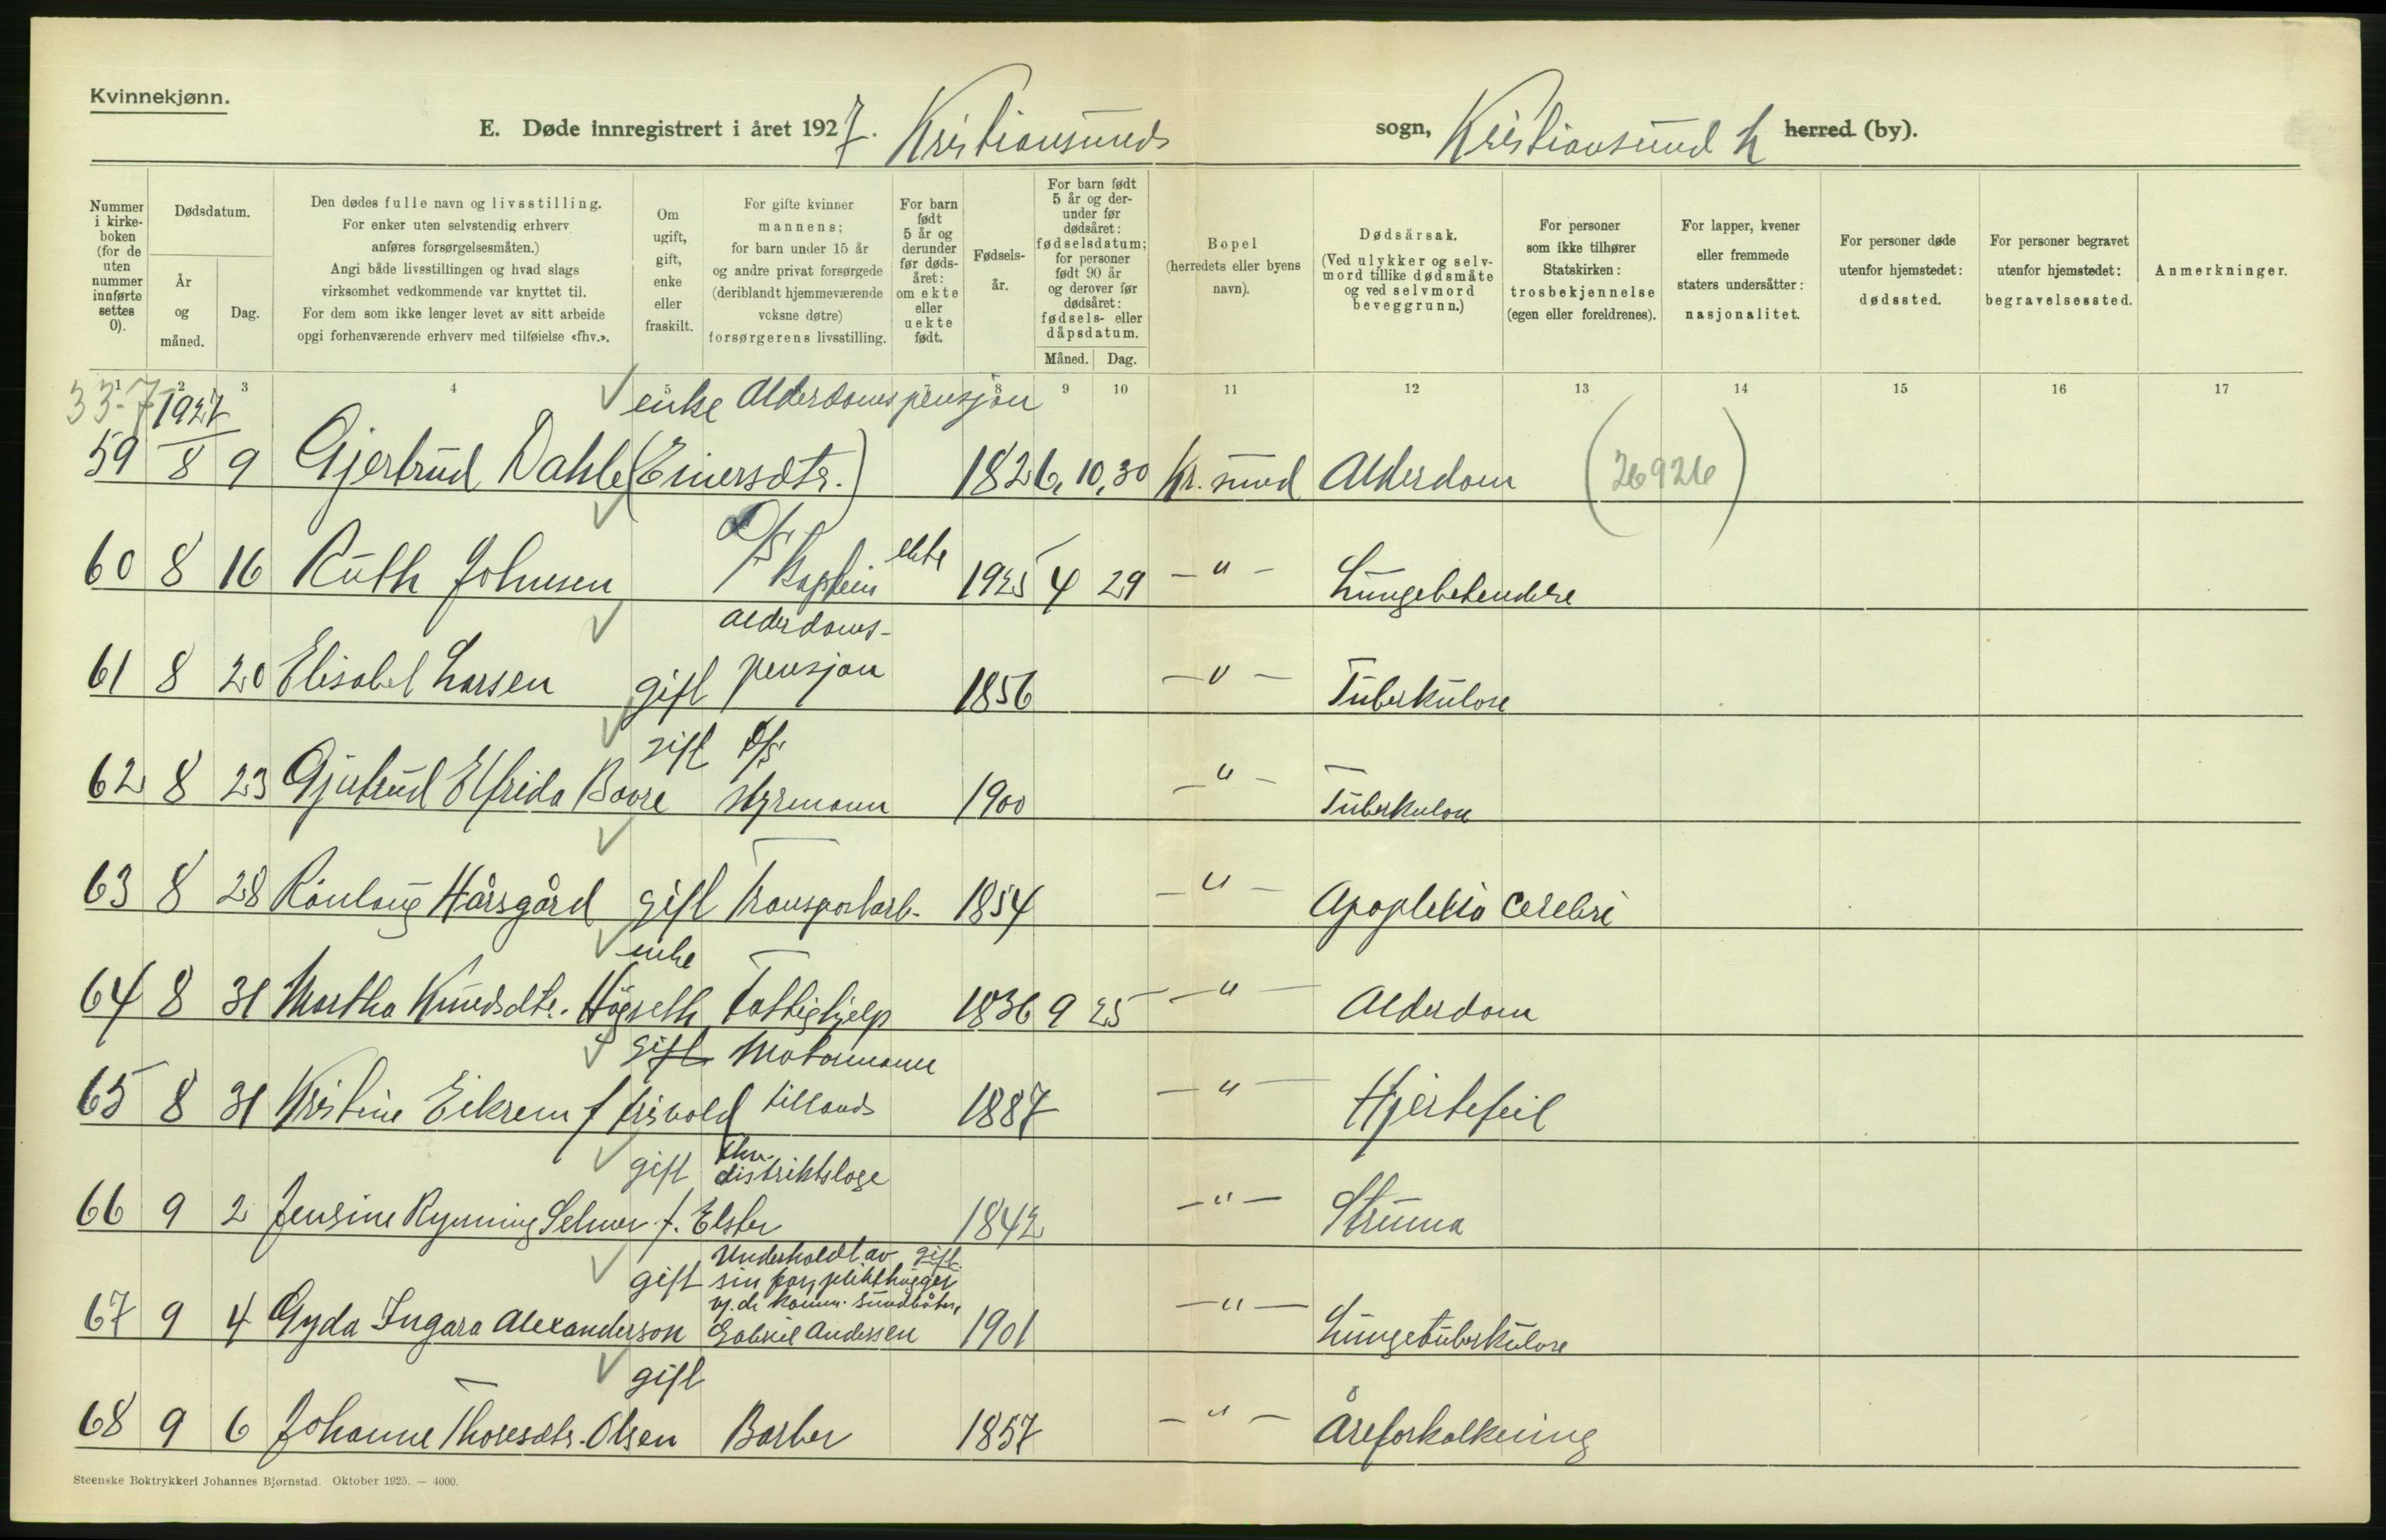 Kvinnekjønn.
E. Døde innregistrert i året 1927. Kristiansunds sogn, Kristiansund N herred (by).
Nummer i kirkeboken (for de uten nummer innførte settes 0).
Dødsdatum.
År og måned.
Dag.
Den dødes fulle navn og livsstilling.
For enker uten selvstendig erhverv
anføres forsørgelsesmåten.)
Angi både livsstillingen og hvad slags
virksomhet vedkommende var knyttet til.
For dem som ikke lenger levet av sitt arbeide
opgi forhenværende erhverv med tilføielse «fhv.».
Om ugift, gift, enke eller fraskilt.
For gifte kvinner
mannens;
for barn under 15 år
og andre privat forsørgede
(deriblandt hjemmeværende
voksne døtre)
forsørgerens livsstilling.
For barn født 5 år og derunder før dødsåret: om ekte eller uekte født.
Fødselsår.
For barn født 5 år og derunder før dødsåret: fødselsdatum; for personer født 90 år og derover før dødsåret: fødsels- eller dåpsdatum.
Måned. Dag.
Bopel
(herredets eller byens
navn).
Dødsårsak.
(Ved ulykker og selvmord tillike dødsmåte
og ved selvmord
beveggrunn.)
For personer
som ikke tilhører
Statskirken:
trosbekjennelse
(egen eller foreldrenes).
For lapper, kvener
eller fremmede
staters undersåtter:
nasjonalitet.
For personer døde
utenfor hjemstedet:
dødssted.
For personer begravet
utenfor hjemstedet:
begravelsessted.
Anmerkninger.
1 2 3 4 5 7 8 9 10 11 12 13 14 15 16 17
33-7 1927 enke Alderdomspensjon
59 8 9 Gjertrud Dahle (Einersdtr.) 1826, 10, 30 Kr.sund Alderdom (26926)
60 8 16 Ruth Johnsen D/S Kaptein ekte 1925 4 29 -"- Lungebetendelse
Alderdoms-
61 8 20 Elisabet Larsen gift pensjon 1856 -"- Tuberkulose
gift D/S
62 8 23 Gjertrud Elfrida Bovre styrmann 1900 -"- Tuberkulose
63 8 28 Rønlaug Hårsgård gift Transportarb. 1854 -"- Apoplexia cerebri
enke
64 8 31 Martha Knudsdtr. Høgseth Fattighjelp 1836 9 25 -"- Alderdom
gift Motormann
65 8 31 Kristine Eikrem f Frisvold tillands 1887 -"- Hjertefeil
fhv.
gift distriktslæge
66 9 2 Jensine Rynning Selmer f. Elster 1842 -"- Struma
Underholdt av gift
gift sin
vj. de komm. sundbåter,
67 9 4 Gyda Ingara Alexanderson Gabriel Andersen 1901 -"- Lungetuberkulose
gift
68 9 6 Johanne Thoresdtr. Olsen Barber 1857 -"- Åreforkalkning
Steenske Boktrykkeri Johannes Bjørnstad. Oktober 1925. — 4000.